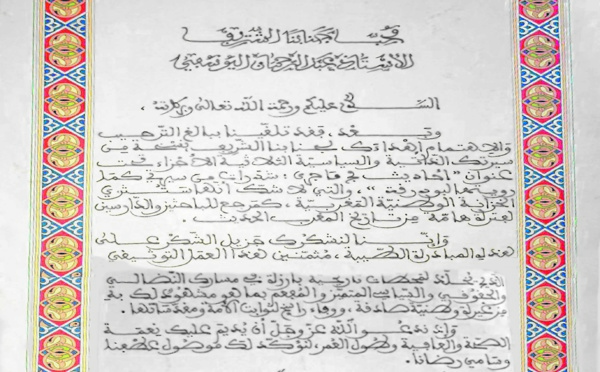 جنابنا الشريف
الأستاذ عبد الرحمان اليوسفي
السلام عليكم ورحمة الله تعالى وبركاته،
وبعد، فقد تلقينا ببالغ الترحيب
والاهتمام إهداءك لجنابنا الشريف نسخة من
سيرتك الذاتية والسياسية الثلاثية الأجزاء، تحت
عنوان "أحاديث في ما جرى: شذرات من سيرتي كما
رويتها لبودرقة"، والتي لا شك أنها ستثري
الخزانة الوطنية المغربية، كمرجع للباحثين والدارسين
لفترة هامة من تاريخ المغرب الحديث.
وإننا لنشكرك جزيل الشكر على
هذه المبادرة الطيبة، مثمنين هذا العمل التوثيقي
الذي يخلد لمحطات تاريخية بارزة في مسارك النضالي
والحقوقي والسياسي المتميز والمفعم بما هو مشهود لك به
من غيرة وطنية صادقة، ووفاء راسخ لثوابت الأمة ومقدساتها.
وإذ ندعو الله عز وجل أن يديم عليك نعمة
الصحة والعافية وطول العمر، لنؤكد لك موصول عطفنا
وسامي رضانا.